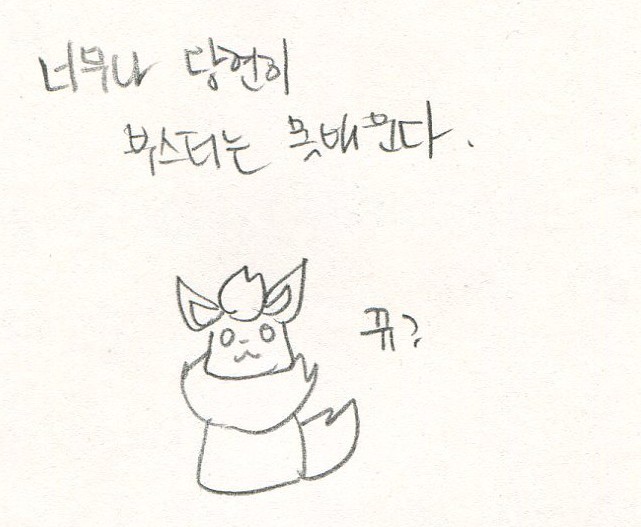 너무나 당현히
부스터는 못배운다.
뀨?